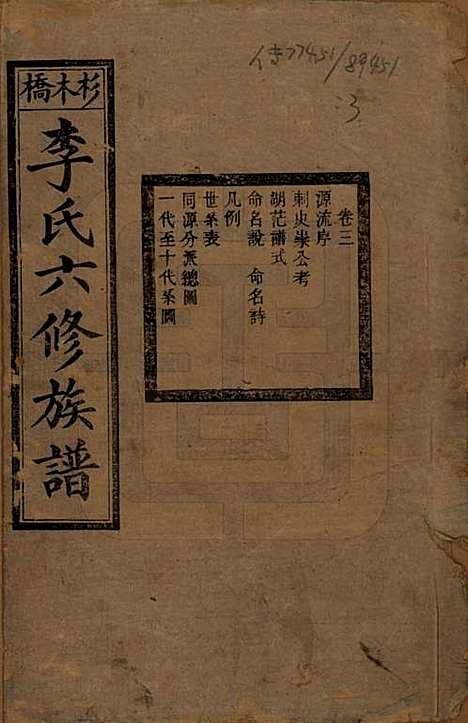 杉木橋
李氏六修族譜
卷三
源流序
刺史崇公考
湖茫譜式
命名說 命名詩
凡例
世系表
同源分派總圖
一代至十代系圖
77451/89451
3